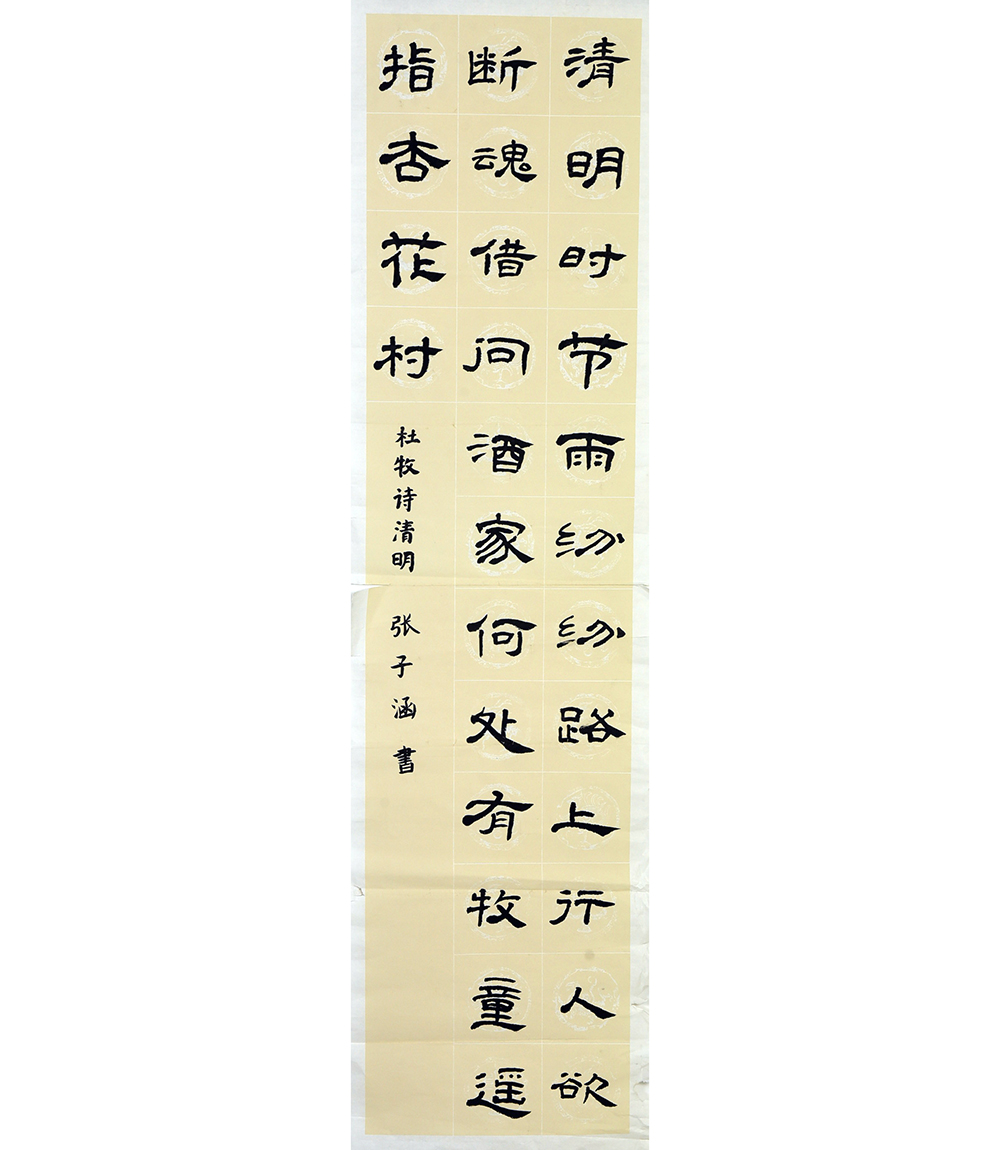 清明时节雨纷纷路上行人欲
断魂借问酒家何处有牧童遥
指杏花村
杜牧诗清明 张子涵書